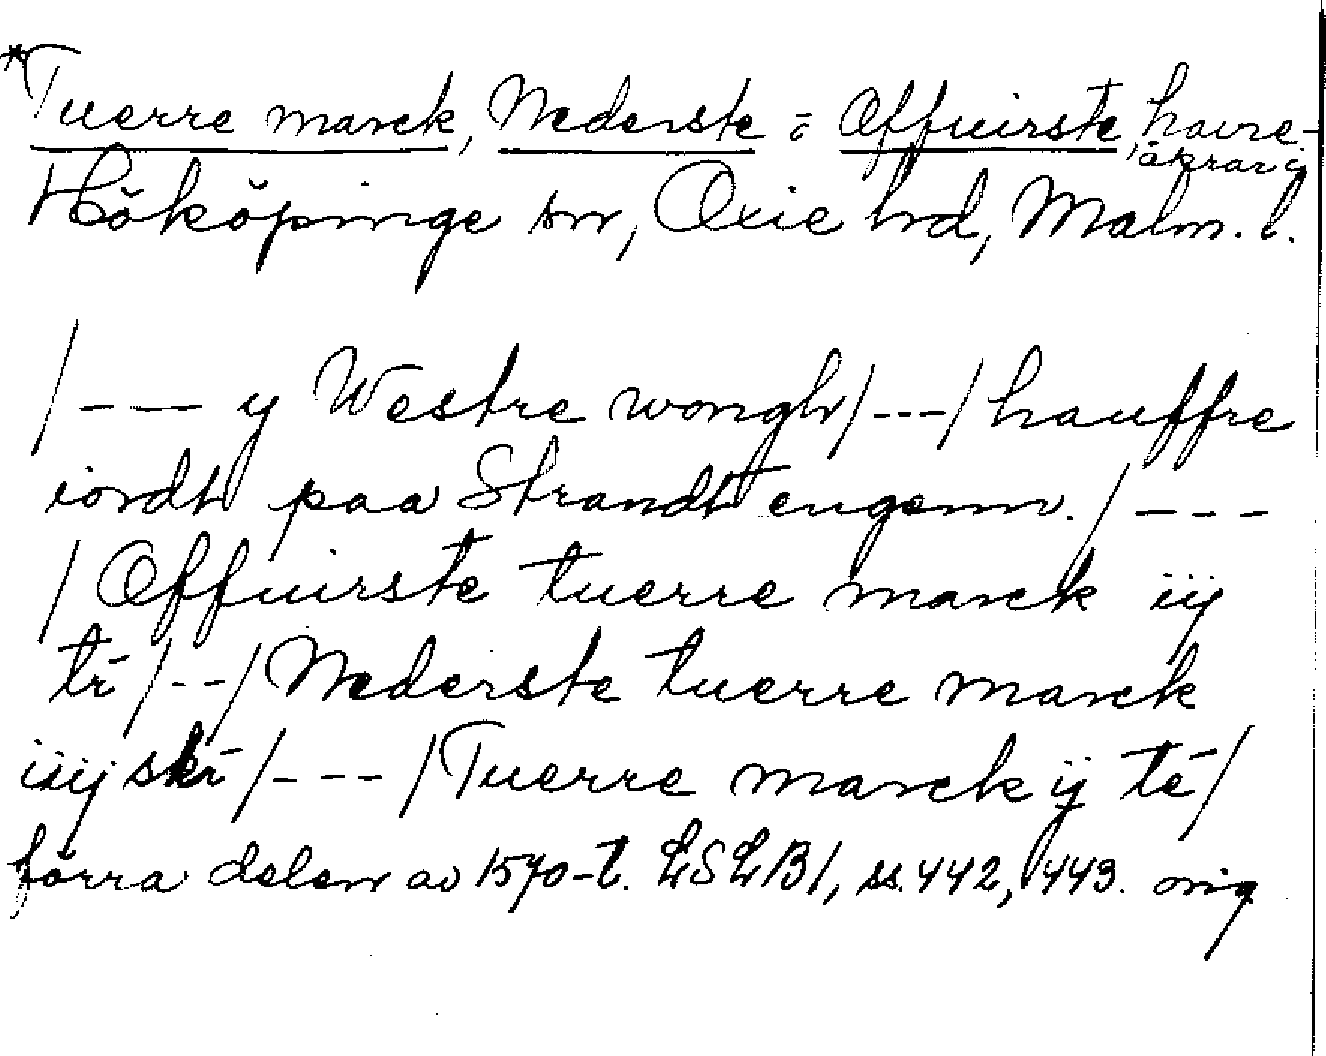 *Tuerre marck, Nederste o Offuirste, havre-
åkrar i
Hököpinge sn, Oxie hd, Malm. l.
/--- y Westre wongh/---/hauffre
iordt paa Strandt engenn./---
/Offuirste tuerre marck iij
tr̄/--/Nederste tuerre marck
iiij skr̄/---/Tuerre marck ij te/
förra delen av 1570-t. LSLB1, ss. 442, 443. orig